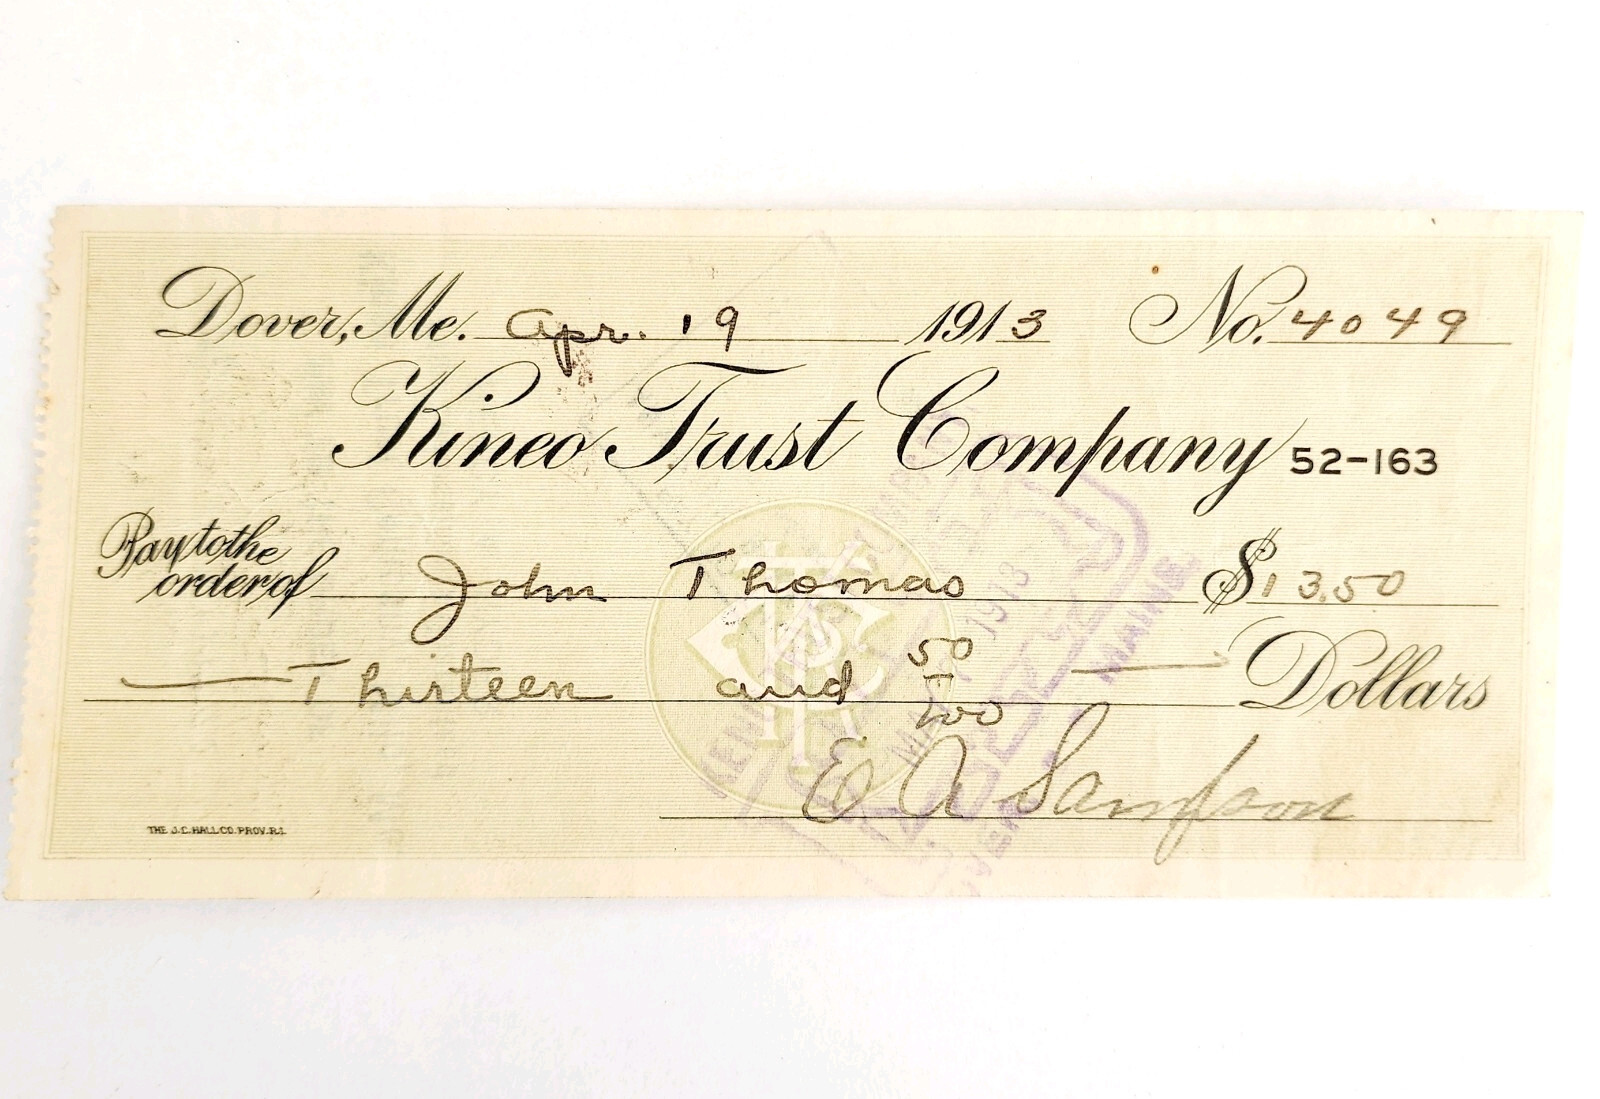 Dover, Me. Apr. 19 1913 No. 4049
Kineo Trust Company 52-163
Pay to the
order of John Thomas $13.50
Thirteen and 50/100 Dollars
E A Sampson
THE J.C. HALL CO. PROV. R.I.
1913
MAINE